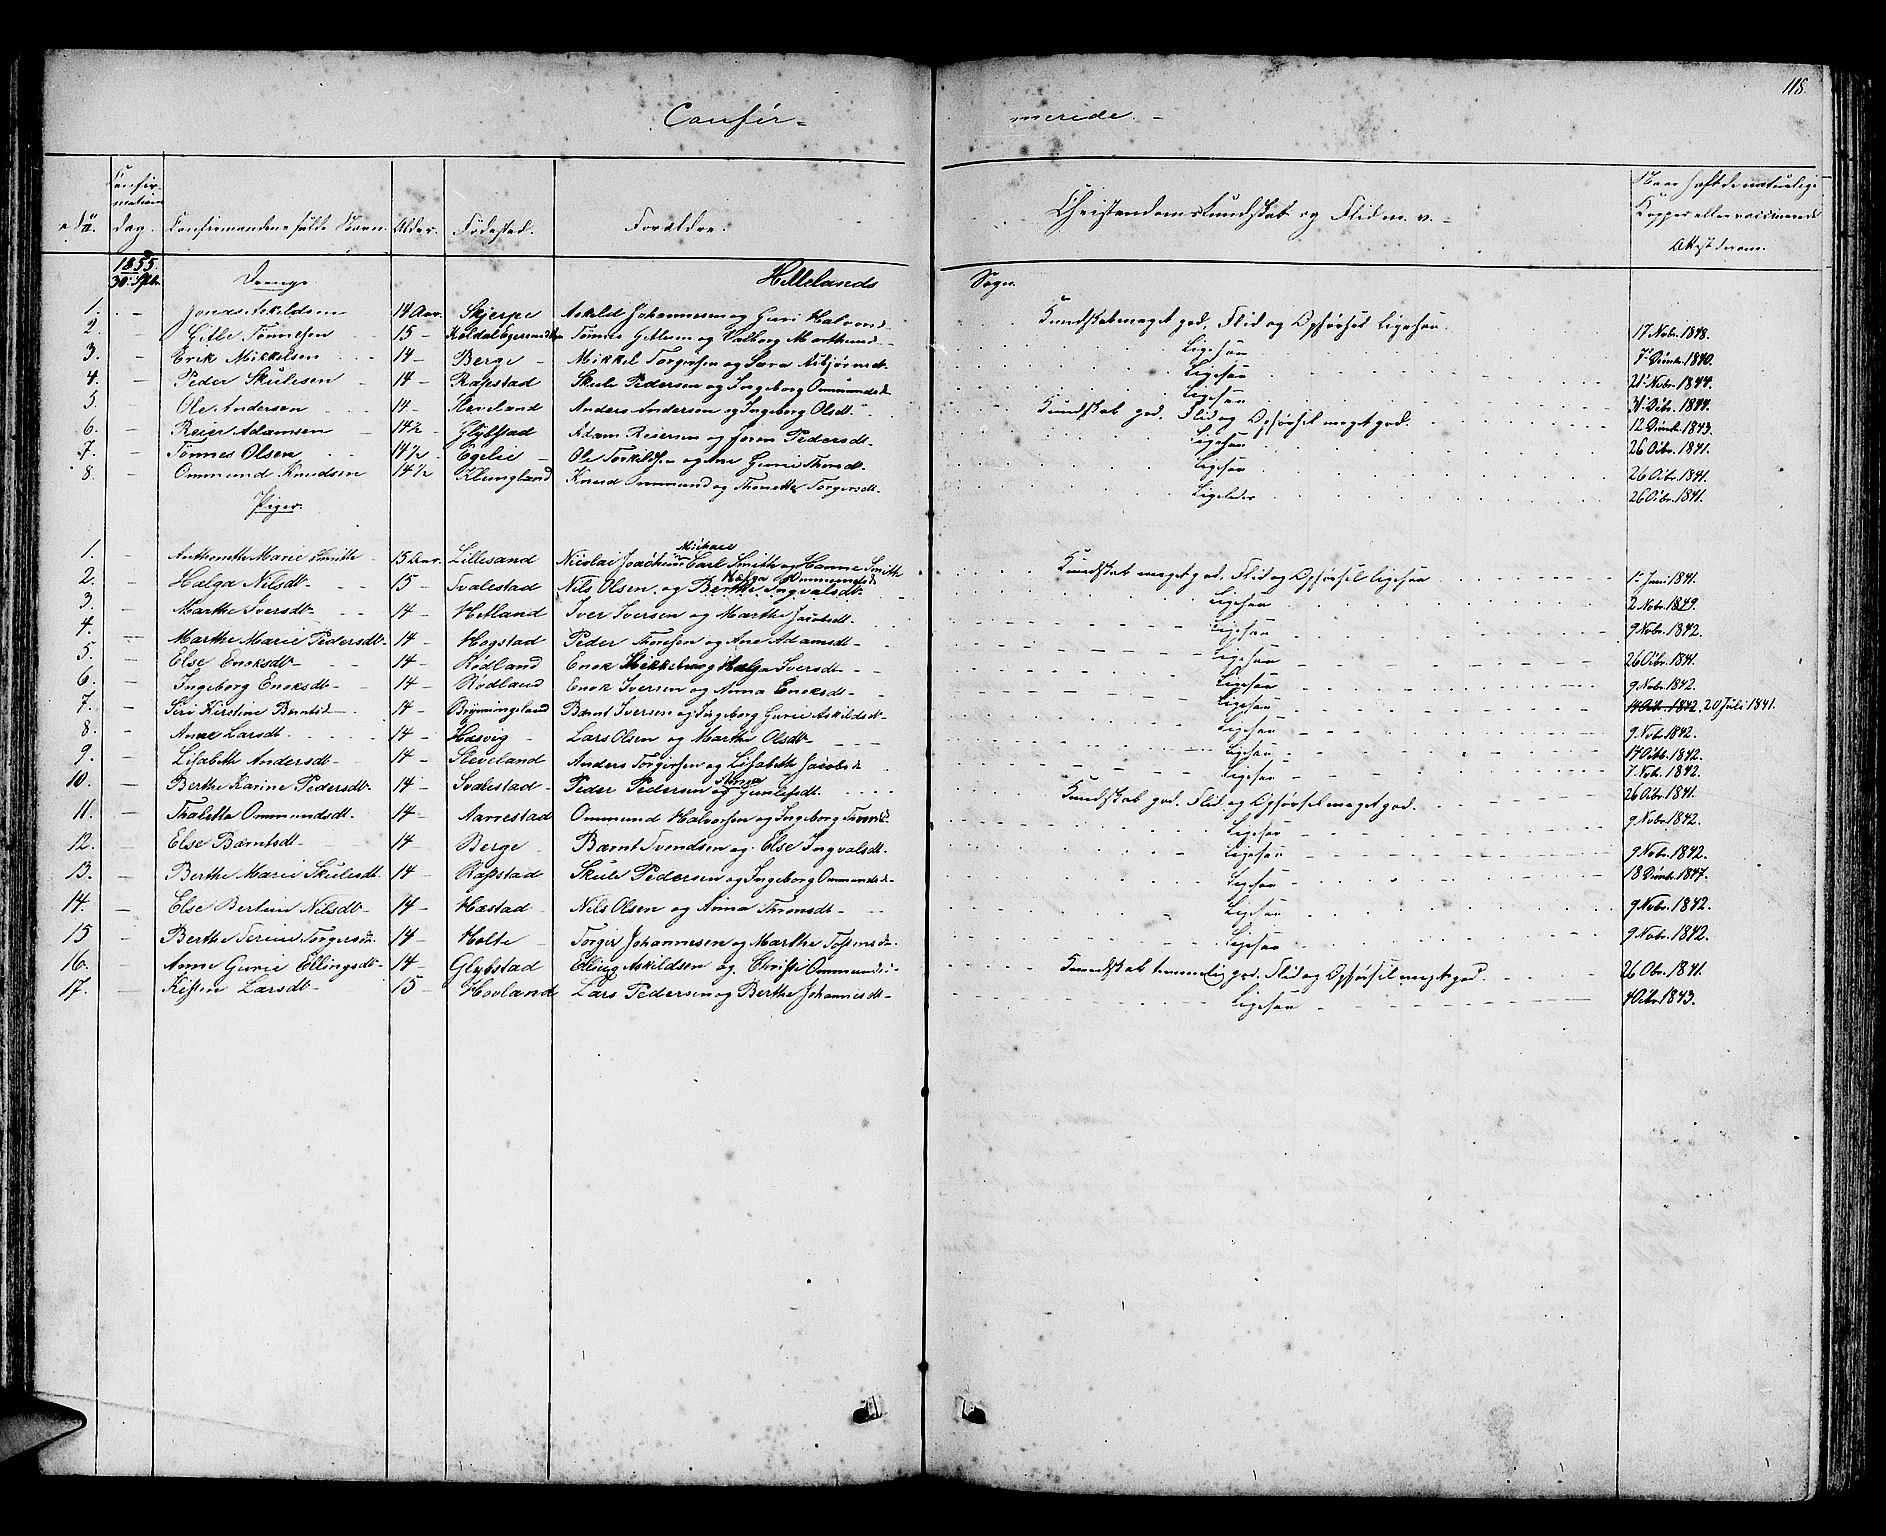 118.
Confir-
merede. -
Confir-
mations
dag.
Confirmandens fulde Navn.
Alder.
Fødested.
Forældre.
Christendomskundskab og Flid m. v. -
Have haft de naturlige
Kopper eller vaccinerede
Attest derom.
1855
30 Sptbr.
Drenge
Hillelands
Sogn.
1. - Jonas Askildsen 14 Aar. Skjerpe Askild Johannesen og Guri Halvorsd. Kundskab meget god, Flid og Opførsel ligesaa. 17 Nobr. 1848.
2. - Gitle Tønnesen 15 - Koldal Egersund Tønnes Gitlesen og Valborg Ligesaa 1840.
3. - Erik Mikkelsen 14 - Berge - Mikkel Torgersen og Sara Asbjørnsdt. Ligesaa 21 Nobr. 1844.
4. - Peder Skulesen - 14 - Rapstad Skule Pedersen og Ingeborg Ommundsdt. Ligesaa 31 Octbr. 1844.
5. Ole Andersen 14 - Sleveland Anders Andersen og Ingeborg Olsdt. Kundskab god. Flid og Opførsel meget god. 12 1843.
6. - Reier Adamsen - 14½ - Glybstad Adam Reiersen og Joren Pedersdt. Ligesaa 26 Octbr. 1841.
7. - Tønnes Olsen 14½ - Egelie - Ole Torkilds. og Ane Gurie Thorsdt. Ligesaa 26 Octbr. 1841.
8. - Ommund Knudsen 14½ Klungland Knud Ommund og Thonette Torgersdt. Ligeledes 26 Octbr. 1841.
Piger.
Michael
1. - Anthonette Marie Smith 15 Aar. Lillesand Nicolai Joachim Carl Smith og Hanne Smith Kundskab meget god, Flid og Opførsel ligesaa 1. Juni 1841.
Helga Ommundsdt
2. - Helga Nilsdt - 15 - Svalestad Nils Olsen og Berthe Ingvalsdt. Ligesaa 2 Nobr. 1849.
3. - Marthe Iversdt 14 - Hetland Iver Iversen og Marthe Jacobsdt. Ligesaa 9 Nobr. 1842.
4. - Marthe Marie Pedersdt. 14 - Hogstad Peder Thoresen og Ane Adamsdt - Ligesaa 26 Octbr. 1841.
5. - Else Enoksdt 14 - Rødland Enok Mikkelsen og Helga Iversdt - Ligesaa 9 Nobr. 1842.
6. - Ingeborg Enoksdt - 14 - Rødland Enok Iversen og Anna Enoksdt - Ligesaa 14 Octbr. 1842. 20 Juli 1841.
7. - Siri Kirstine Berntsdt 14 - Brynningsland Bærnt Iversen og Ingeborg Gurie Askildsdt - Ligesaa 9 Nobr. 1842.
8. - Anne Larsdt. 14 - Hæsvig - Lars Olsen og Marthe Olsdt - Ligesaa 17 Octbr. 1842.
9. - Lisabeth Andersdt - 14 - Sleveland Anders Torgersen og Lisabeth Jacobsdt Ligesaa 7. Nob. 1842.
Anna
10. - Berthe Karine Pedersdt - 14 - Svalestad - Peder Pedersen og Gunlefsdt. Kundskab god. Flid og Opførsel meget god. 26 Octbr. 1841.
11. - Thalette Ommundsdt - 14 - Aarrestad Ommund Halvorsen og Ingeborg Ligesaa 9 Nobr. 1842.
12. - Else Bærntsdt - 14 - Berge - Bærnt Svendsen og Else Ingvalsdt. Ligesaa 9 Nobr. 1842.
13. - Berthe Marie Skulesdt. 14 - Rapstad Skule Pedersen og Ingeborg Ommundsdt. Ligesaa 18 1847.
14. - Else Bertine Nilsdt - 14 - Hæstad - Nils Olsen og Anna Thronsdt - Ligesaa 9 Nobr. 1842.
15 - Berthe Serine Torgersdt. 14 - Holte - Torger Johannesen og Marthe Tostensdt. Ligesaa 9 Nobr. 1842.
16. - Anne Gurie Ellingsdt - 14 - Glybstad Elling Askildsen og Christi Ommundsdt Kundskab temmelig god. Flid og Opførsel meget god. 26 Obr. 1841.
17. - Kisten Larsdt - 15 - Hovland Lars Pedersen og Berthe Johannisdt - Ligesaa 4 Octbr. 1843.